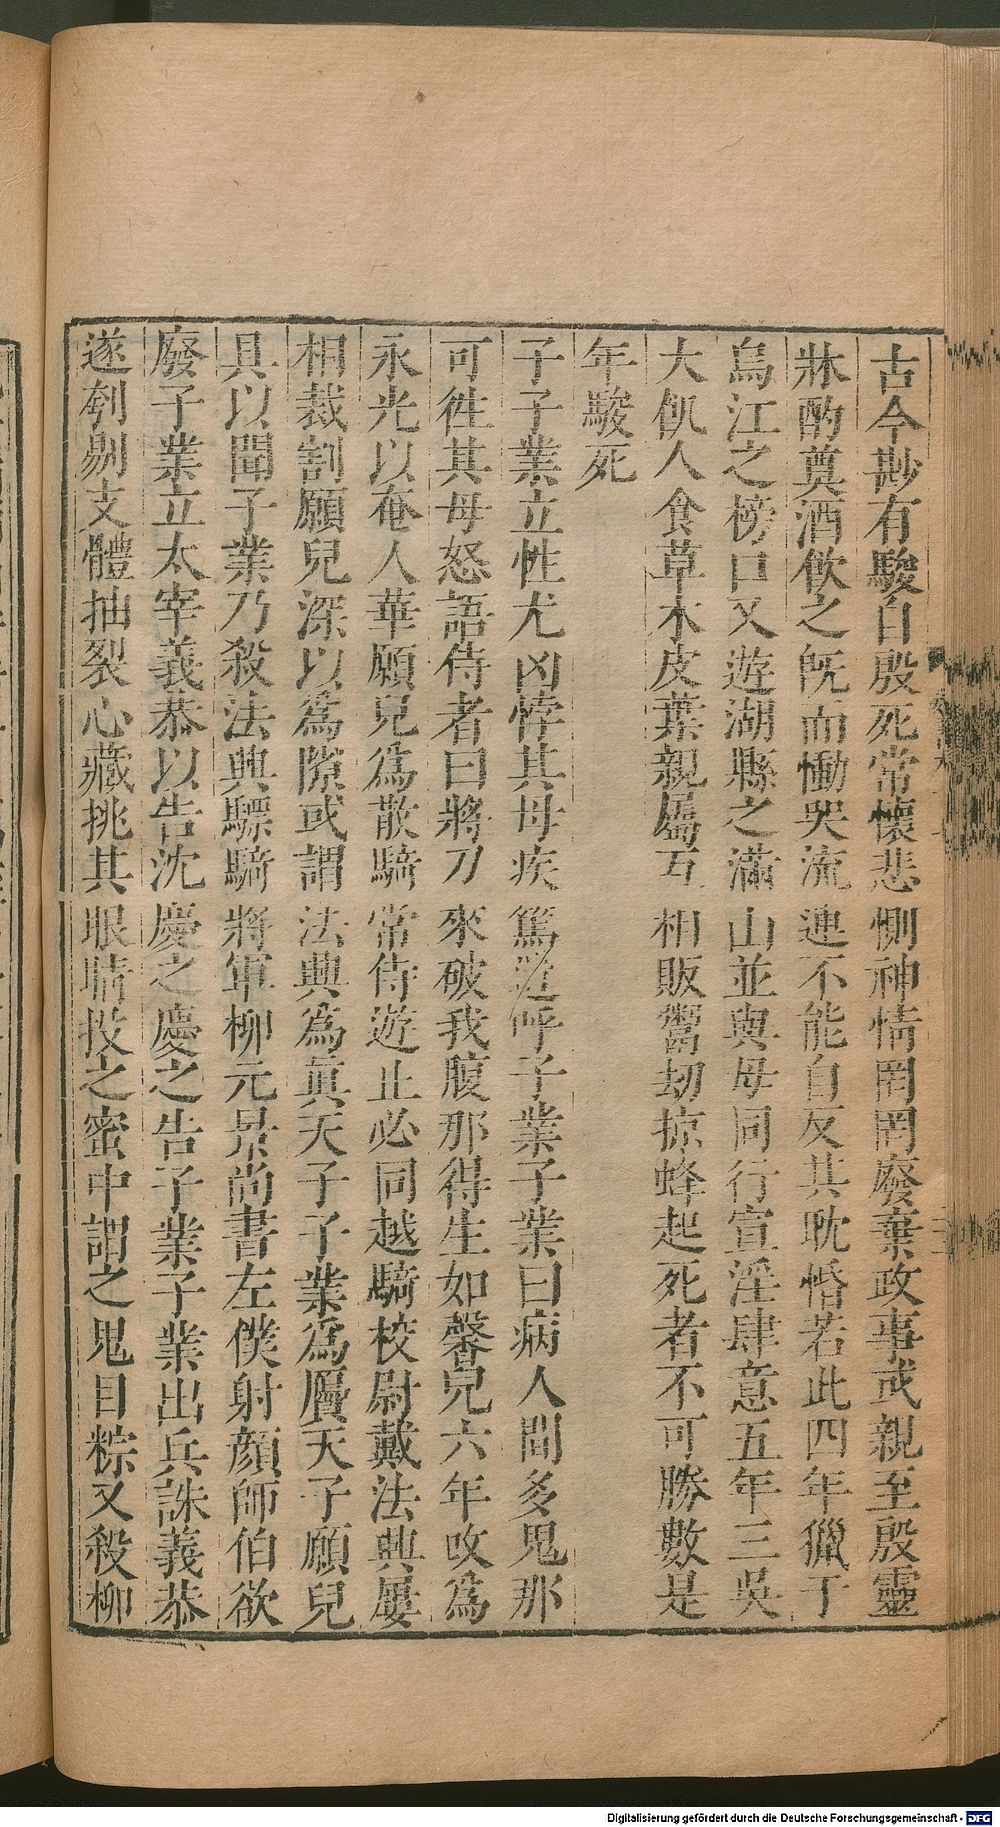 古今尠有駿自殷死常懷悲惻神情罔罔廢棄政事或親至殷靈
牀酌奠酒飲之旣而慟哭流連不能自反其耽惛若此四年獵于
烏江之榜口又遊湖縣之滿山並與母同行宣淫肆意五年三吳
大飢人食草木皮葉親屬互相販鬻劫掠蜂起死者不可勝數是
年駿死
子子業立性尤凶悖其母疾篤遣呼子業子業曰病人間多鬼那
可徃其母怒語侍者曰將刀來破我腹那得生如馨兒六年改為
永光以奄人華願兒爲散騎常侍遊止必同越騎校尉戴法興屢
相裁割願兒深以爲隙或謂法興為真天子子業爲贗天子願兒
具以聞子業乃殺法興驃騎將軍柳元景尚書左僕射顏師伯欲
廢子業立太宰義恭以告沈慶之慶之告子業子業出兵誅義恭
遂刳剔支體抽裂心藏挑其眼睛投之蜜中謂之鬼目粽又殺柳
Digitalisierung gefördert durch die Deutsche Forschungsgemeinschaft - DFG